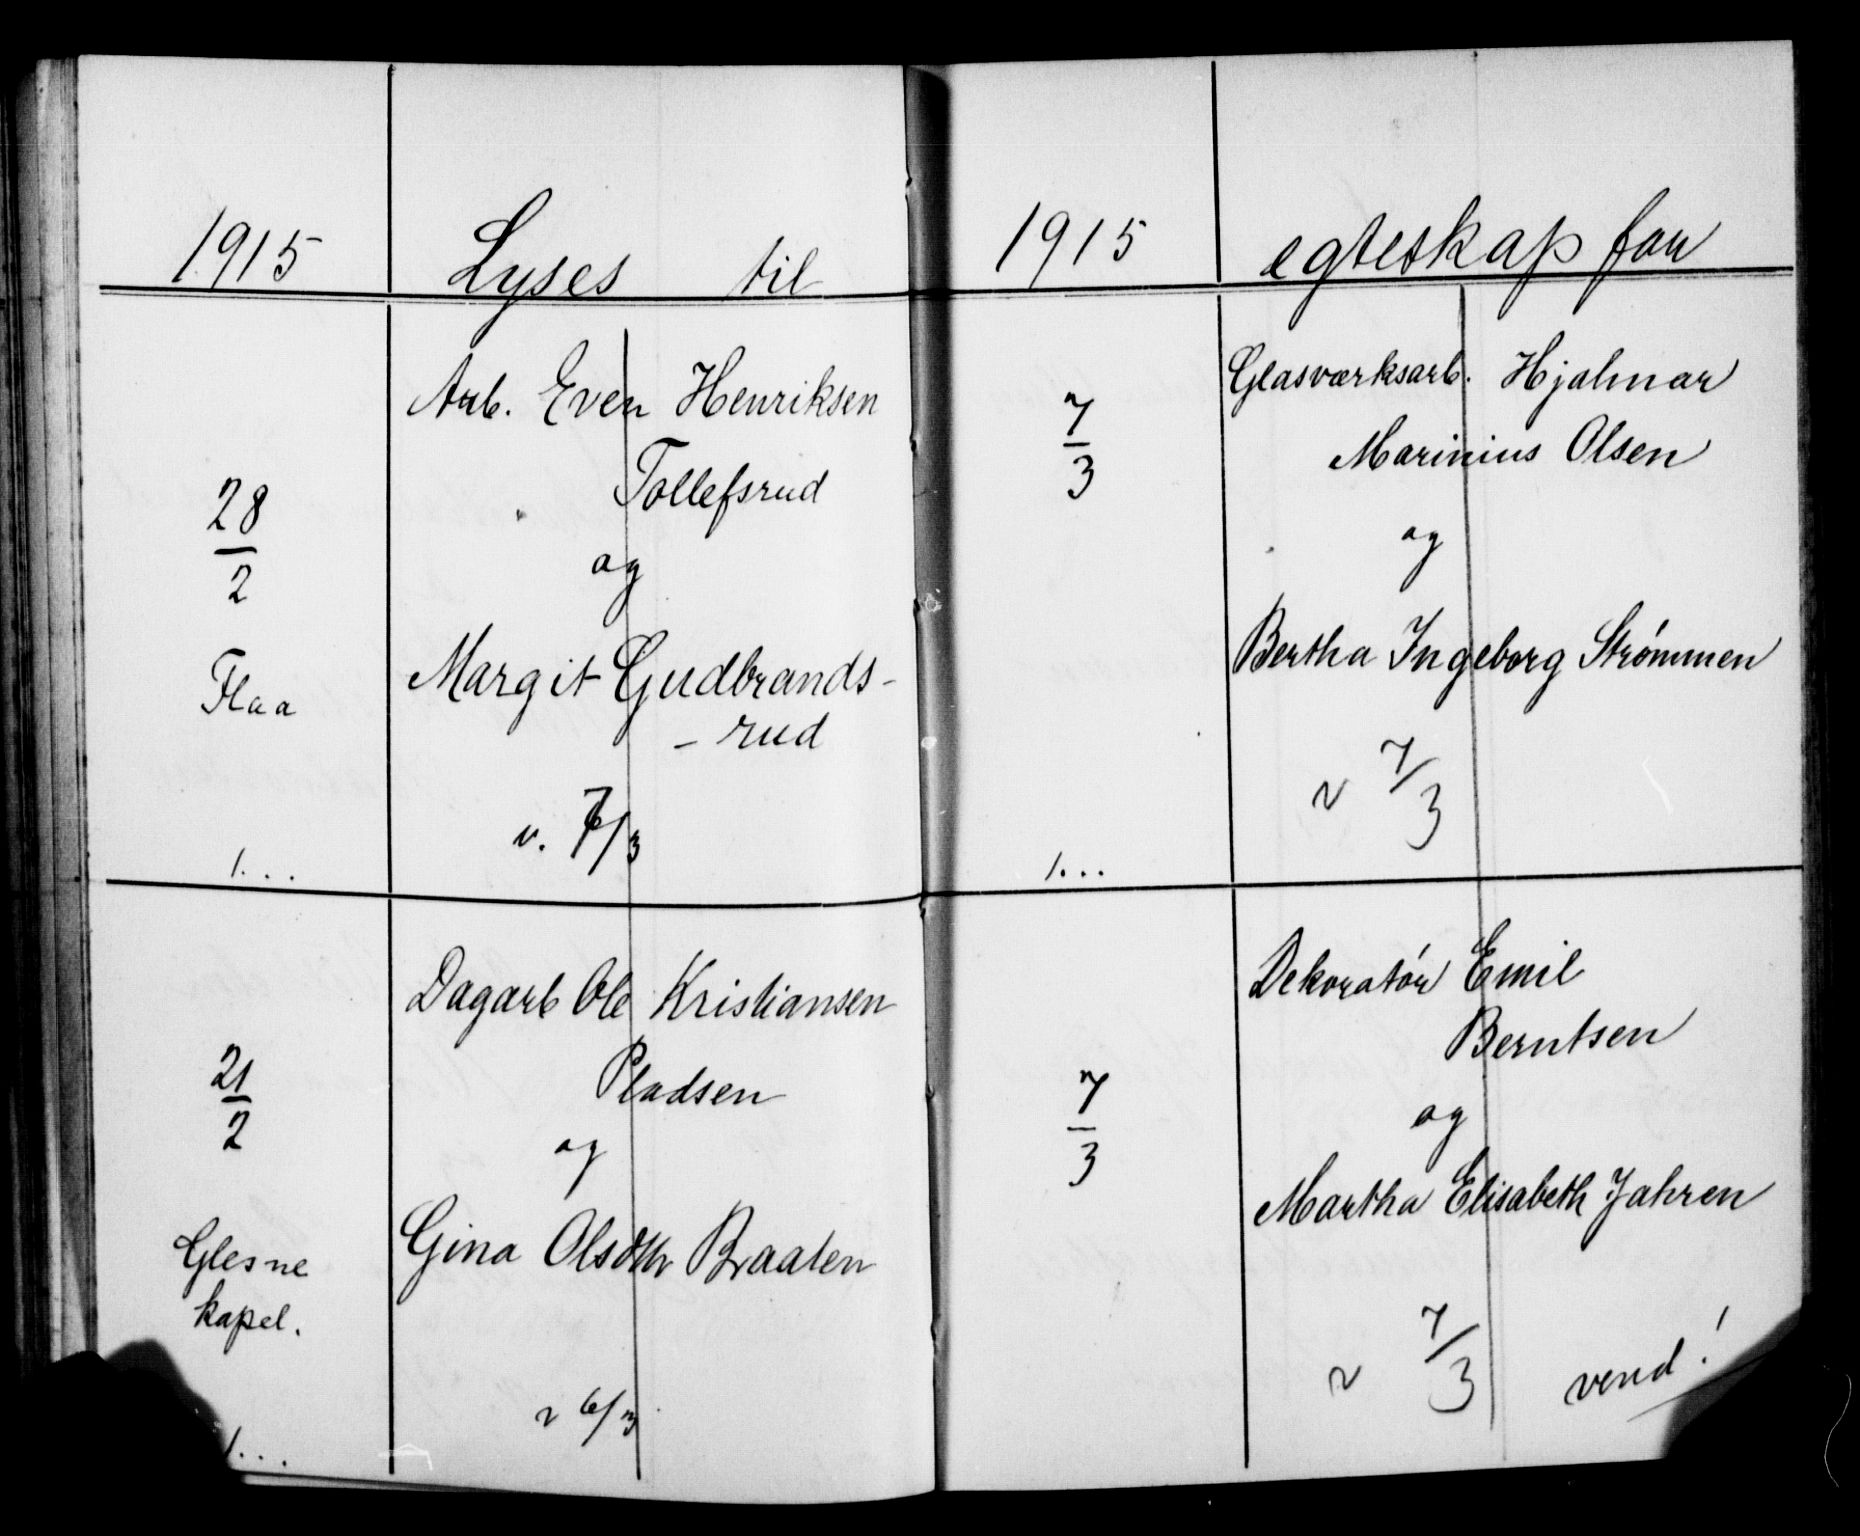 1915
Lyses til
28
2
Flaa
1...
Arb. Even Henriksen
Tollefsrud
og
Margit Gudbrands-
- rud
v. 7/3
21
2
Glesne
kapel.
1...
Dagarb Ole Kristiansen
Pladsen
og
Gina Olsdtr Braaten
v 6/3
1915
egteskap for
7
3
1...
Glasværksarb. Hjalmar
Marinius Olsen
og
Bertha Ingeborg Strømmen
v 7/3
7
3
Dekoratör Emil
Berntsen
og
Martha Elisabeth Jahren
v 7/3
vend!